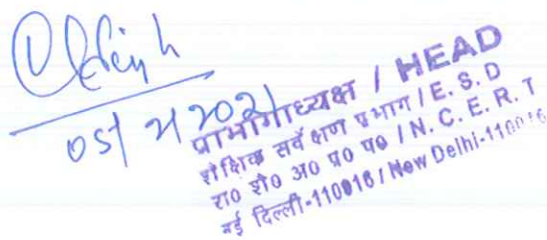 05/2/2021
प्राभागाध्यक्ष / HEAD
शैक्षिक सर्वेक्षण प्रभाग / E. S. D
रा० शै० अ० प्र० प० / N. C. E. R. T
नई दिल्ली-110016 / New Delhi-110016